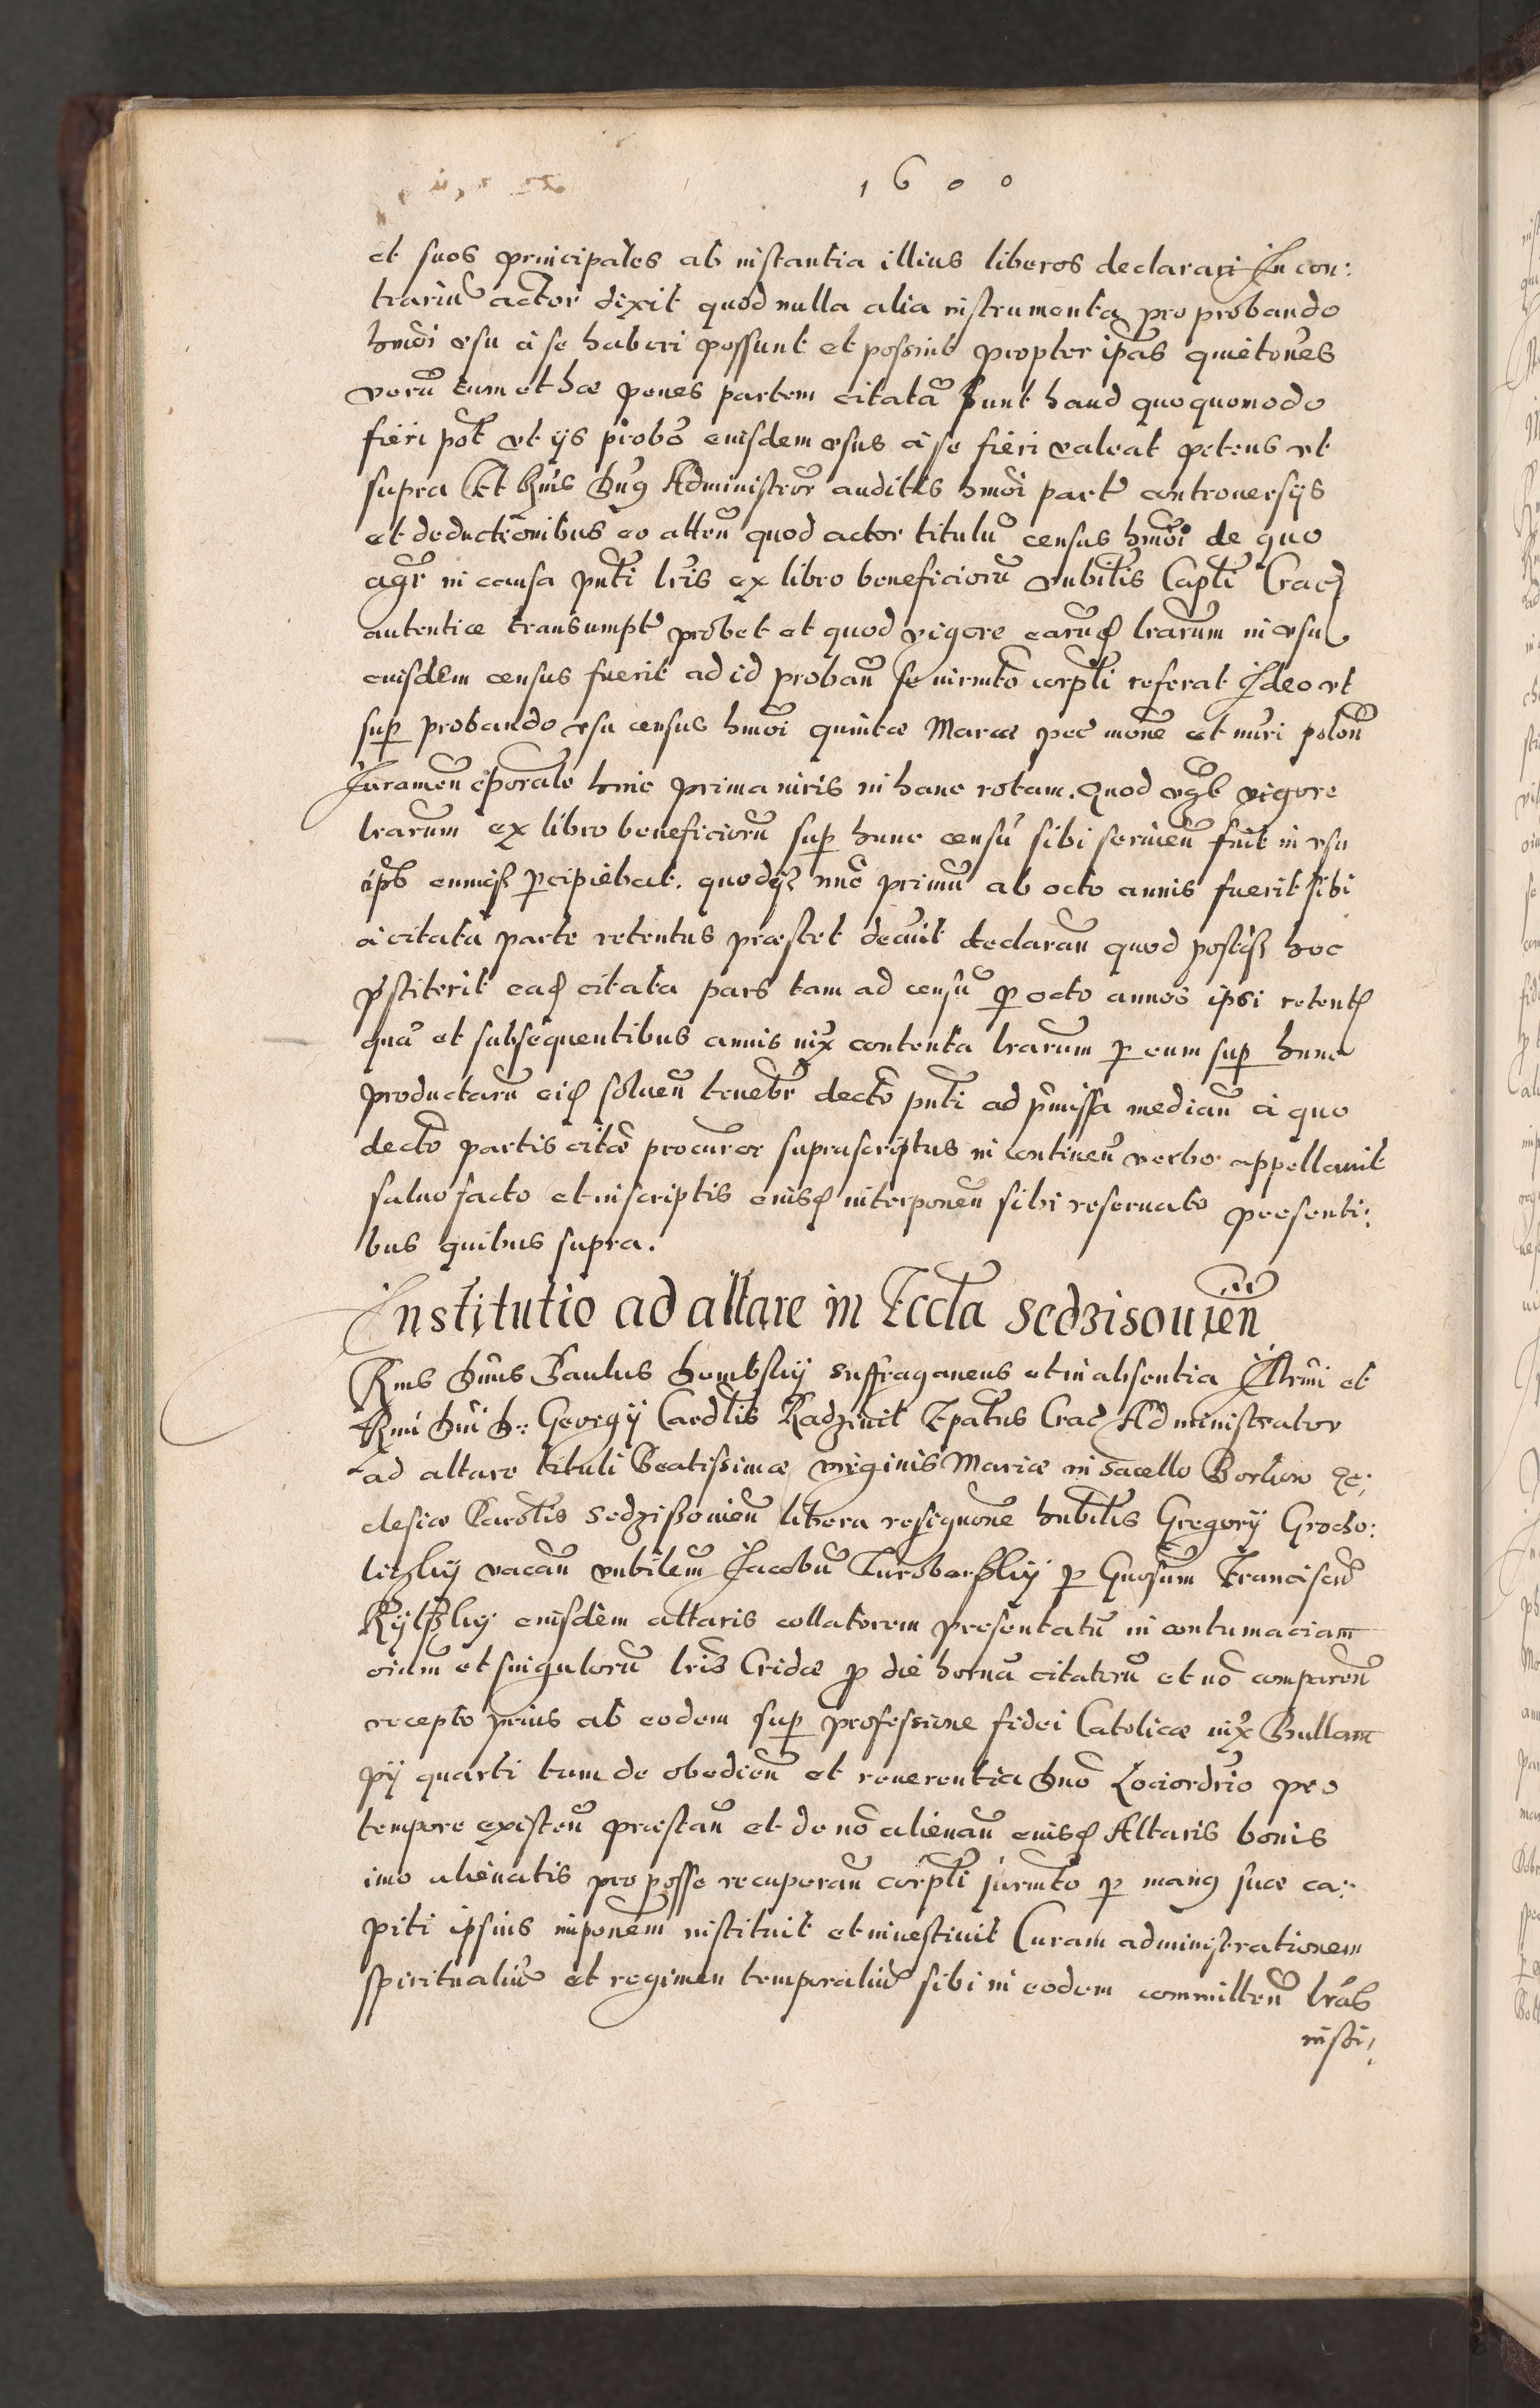 1600
et suos principales ab instantia illius liberos declarari In con:
trariũ actor dixit quod nulla alia instrumenta pro probando
hmõi vsu à se haberi possunt et possint propter ipãs quietões
verũ cum et hæ penes partem citatã sunt haud quoquomodo
fieri põt vt ijs probõ eiusdem vsus à se fieri valeat petens vt
supra Et Rm̃s Dnũs Administror auditis hmõi part controuersijs
et deductionibus eo attẽn quod actor titulũ census hmõi de quo
agr̃ in causa pñti lris ex libro beneficiorũ vnbilis Capli Crac
autentice transumpt probet et quod vigore earũd lrarum in vsu
eiusdem census fuerit ad id proban̄ se iurmto corpli referat Ideo vt
sup probando vsu census hmõi quintæ Marcæ pec monẽ et nuri polon̄
Juramen̄ cporale hinc prima iuris in hanc rotam. Quod vigore
lrarum ex libro beneficiorũ sup hunc censũ sibi seruien̄ fuit in vsu
ipsq eumq percipiebat. quodq nũc primũ ab octo annis fuerit sibi
à citata parte retentus præstet decreuit declaran̄ quod postq hoc
pstiterit ead citata pars tam ad censũ p octo annos ipsi retent
quã et subsequentibus annis iux contenta lrarum p eum sup hunc
productarũ eid soluen̄ tenebr decto pnti ad pmissa median̄ à quo
decto partis citæ procuror suprascriptus in continen̄ verbo appellauit
saluo facto et inscriptis eiusd interponen̄ sibi reseruato presenti:
bus quibus supra.
Institutio ad altare in Eccla Sedzisouien̄
Rms Dnus Paulus Dembsky Suffraganeus et in absentia Illrmi et
Rmi Dni D: Georgij Cardlis Radziuil Epatus Crac Administrator
ad altare tituli Beatissimæ virginis Mariæ in sacello Borkow Ec:
clesiæ Parolis Sedzissouien̄ libera resignone hnbilis Gregorij Grocho:
lizky vacan̄ vnbilem Jacobũ Turobarsky p Gnosum Franciscũ
Rylsky eiusdem altaris collatorem presentatũ in contumaciam
oium et singulorũ lris Cridæ p die horna citatorũ et nõ comparen̄
recepto prius ab eodem sup professione fidei Catolicæ iux Bullam
pij quarti tum de obedien̄ et reuerentia Dno Lociordrio pro
tempore existen̄ præstan̄ et de nõ alienan̄ eiusd Altaris bonis
imo alienatis pro posse recuperan̄ corpli iurmto p manq suæ ca:
piti ipsius imponem instituit et inuestiuit Curam administrationem
spiritualiũ et regimen temporaliũ sibi in eodem committen̄ lras
insti: